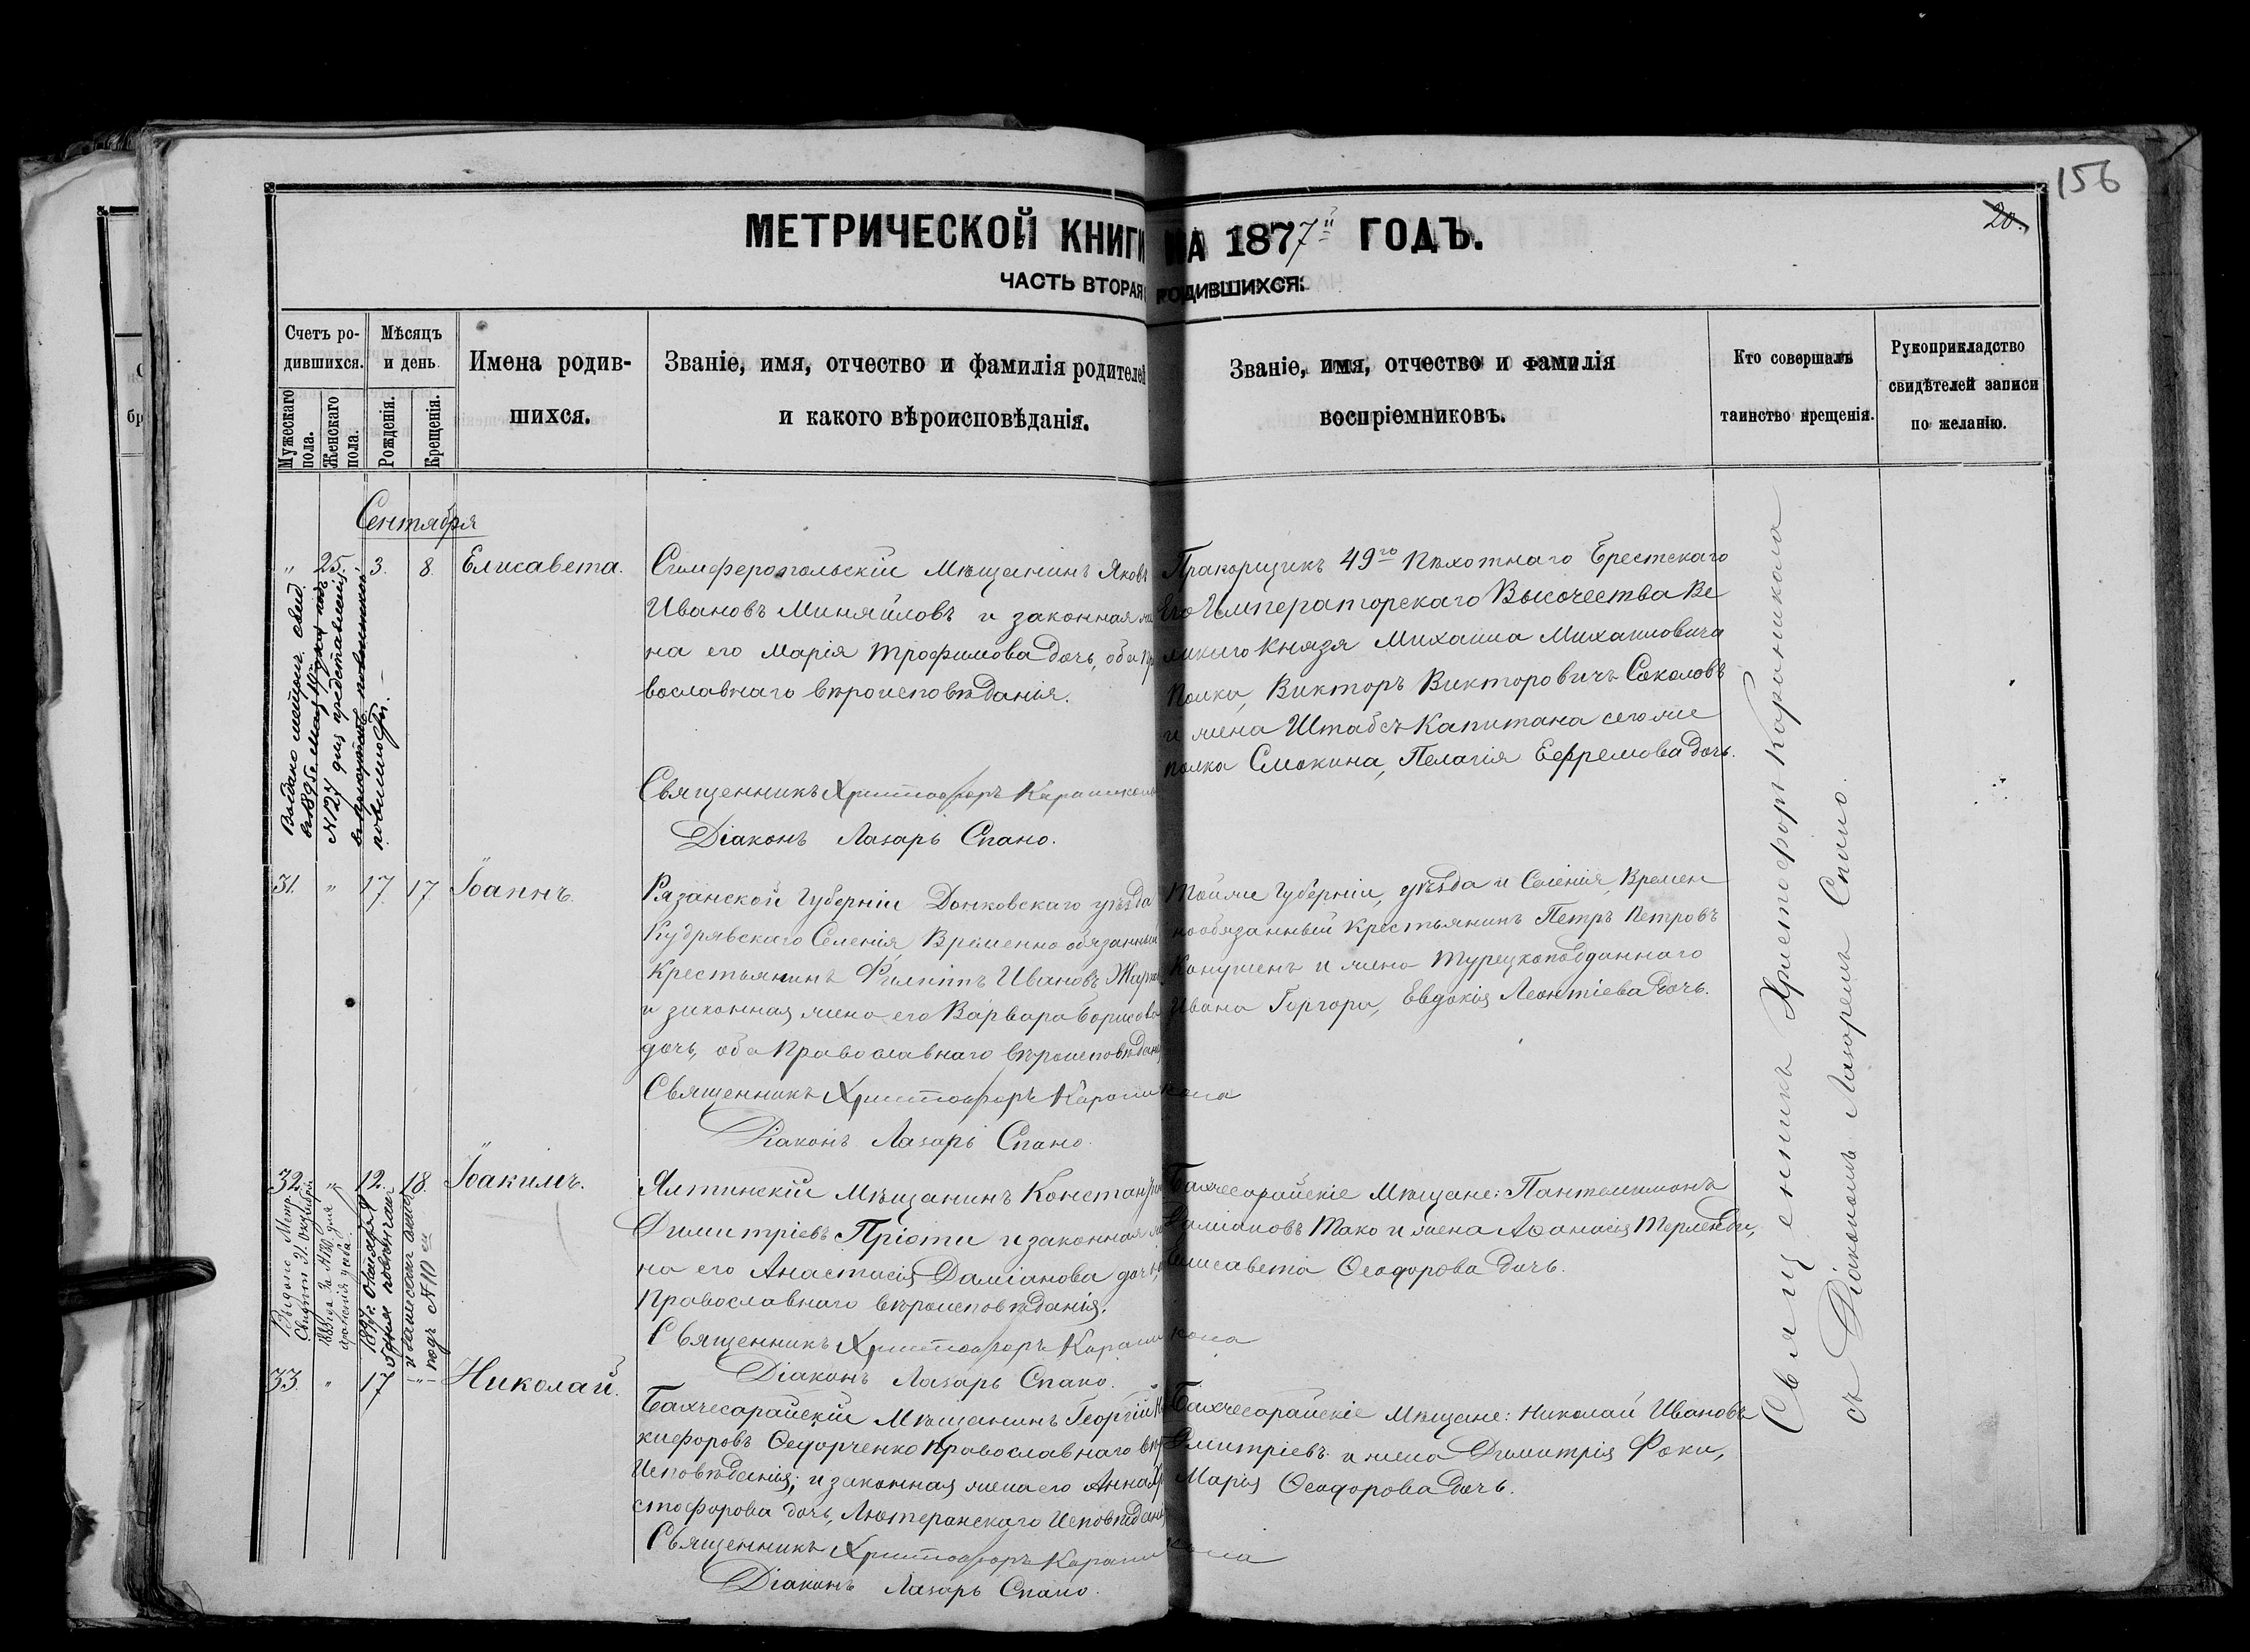 156
20.
МЕТРИЧЕСКОЙ КНИГИ НА 1877й ГОДЪ.
ЧАСТЬ ВТОРАЯ, РОДИВШИХСЯ:
Счетъ ро-
дившихся.
Мужескаго пола.
Женскаго пола.
Мѣсяцъ
и день.
Рожденія.
Крещенія.
Имена родив-
шихся.
Званіе, имя, отчество и фамилія родителей
и какого вѣроисповѣданія.
Званіе, имя, отчество и фамилія
воспріемниковъ.
Кто совершалъ
таинство крещенія.
Рукоприкладство
свидѣтелей записи
по желанію.
Сентября
" 25. 3. 8. Елисавета.
Симферопольскій Мѣщанинъ Яковъ
Ивановъ Миняйловъ и законная же
на его Марія Трофимова дочь, оба пра
вославнаго вѣроисповѣданія.
Священникъ Христофоръ
Діаконъ Лазарь Спано.
Прапорщикъ 49го Пѣхотнаго Брестскаго
Его Императорскаго Высочества Ве
ликаго Князя Михаила Михаиловича
Полка, Викторъ Викторовичъ Соколовъ
и жена Штабсъ Капитана сего же
полка Смокина, Пелагія Ефремова дочь.
Выдано метрич. свид.
въ 1895 г. Мая
№ 127 для представленія
31. " 17 17 Іоаннъ.
Рязанской Губерніи Донковскаго уѣзда
Кудрявскаго Селенія, Временно обязанный
Крестьянинъ Филиппъ Ивановъ
и законная жена его Варвара Борисова
дочь, оба Православнаго вѣроисповѣданія
Священникъ Христофоръ
Діаконъ Лазарь Спано.
Той же Губерніи, уѣзда и Селенія, Времен
нообязанный Крестьянинъ Петръ Петровъ
и жена Турецкоподданнаго
Ивана Горгори, Евдокія Леонтіева дочь.
32. " 12. 18. Іоакимъ.
Ялтинскій Мѣщанинъ Константинъ
Димитріевъ Пріоти и законная же
на его Анастасія Даміанова дочь,
Православнаго вѣроисповѣданія.
Священникъ Христофоръ
Діаконъ Лазарь Спано.
Бахчесарайскіе Мѣщане: Пантелимонъ
Даміановъ Тако и жена Аѳанасія Терленди,
Елисавета Ѳеодорова дочь.
Выдано Метр.
33. " 17 -"- Николай.
Бахчесарайскій Мѣщанинъ Георгій Ни
кифоровъ Ѳедорченко Православнаго вѣро
Исповѣданія; и законная жена его Анна Хри
стофорова дочь, Лютеранскаго Исповѣданія
Священникъ Христофоръ
Діаконъ Лазарь Спано.
Бахчесарайскіе Мѣщане: Николай Ивановъ
Дмитріевъ и жена Димитрія Фоки,
Марія Ѳеодорова дочь.
Священникъ Христофоръ
съ Діакономъ Лазаремъ Спано.